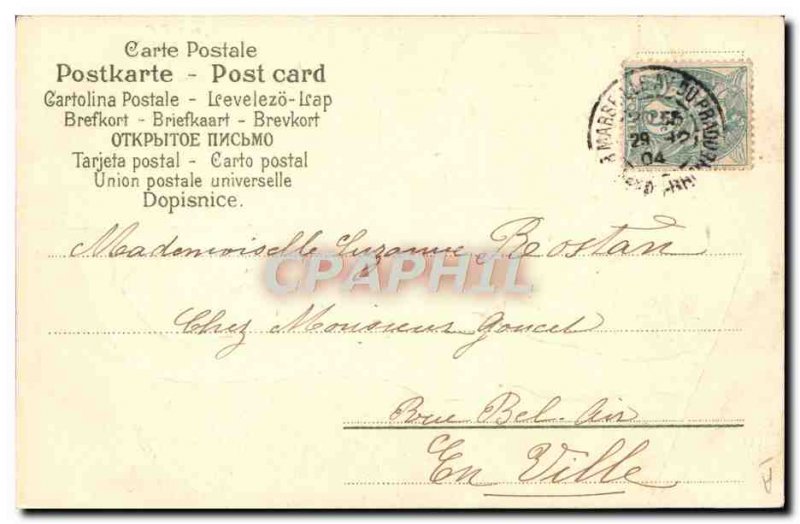 Carte Postale
Postkarte - Post card
Cartolina Postale - Levelezö-Lap
Brefkort - Briefkaart - Brevkort
ОТКРЫТОЕ ПИСЬМО
Tarjeta postal - Carto postal
Union postale universelle
Dopisnice.
MARSEILLE DU PRADO
29
04
Mademoiselle Suzanne Rostan
CPAPHIL
Chez Monsieur Goucet
Rue Bel-Air
En Ville